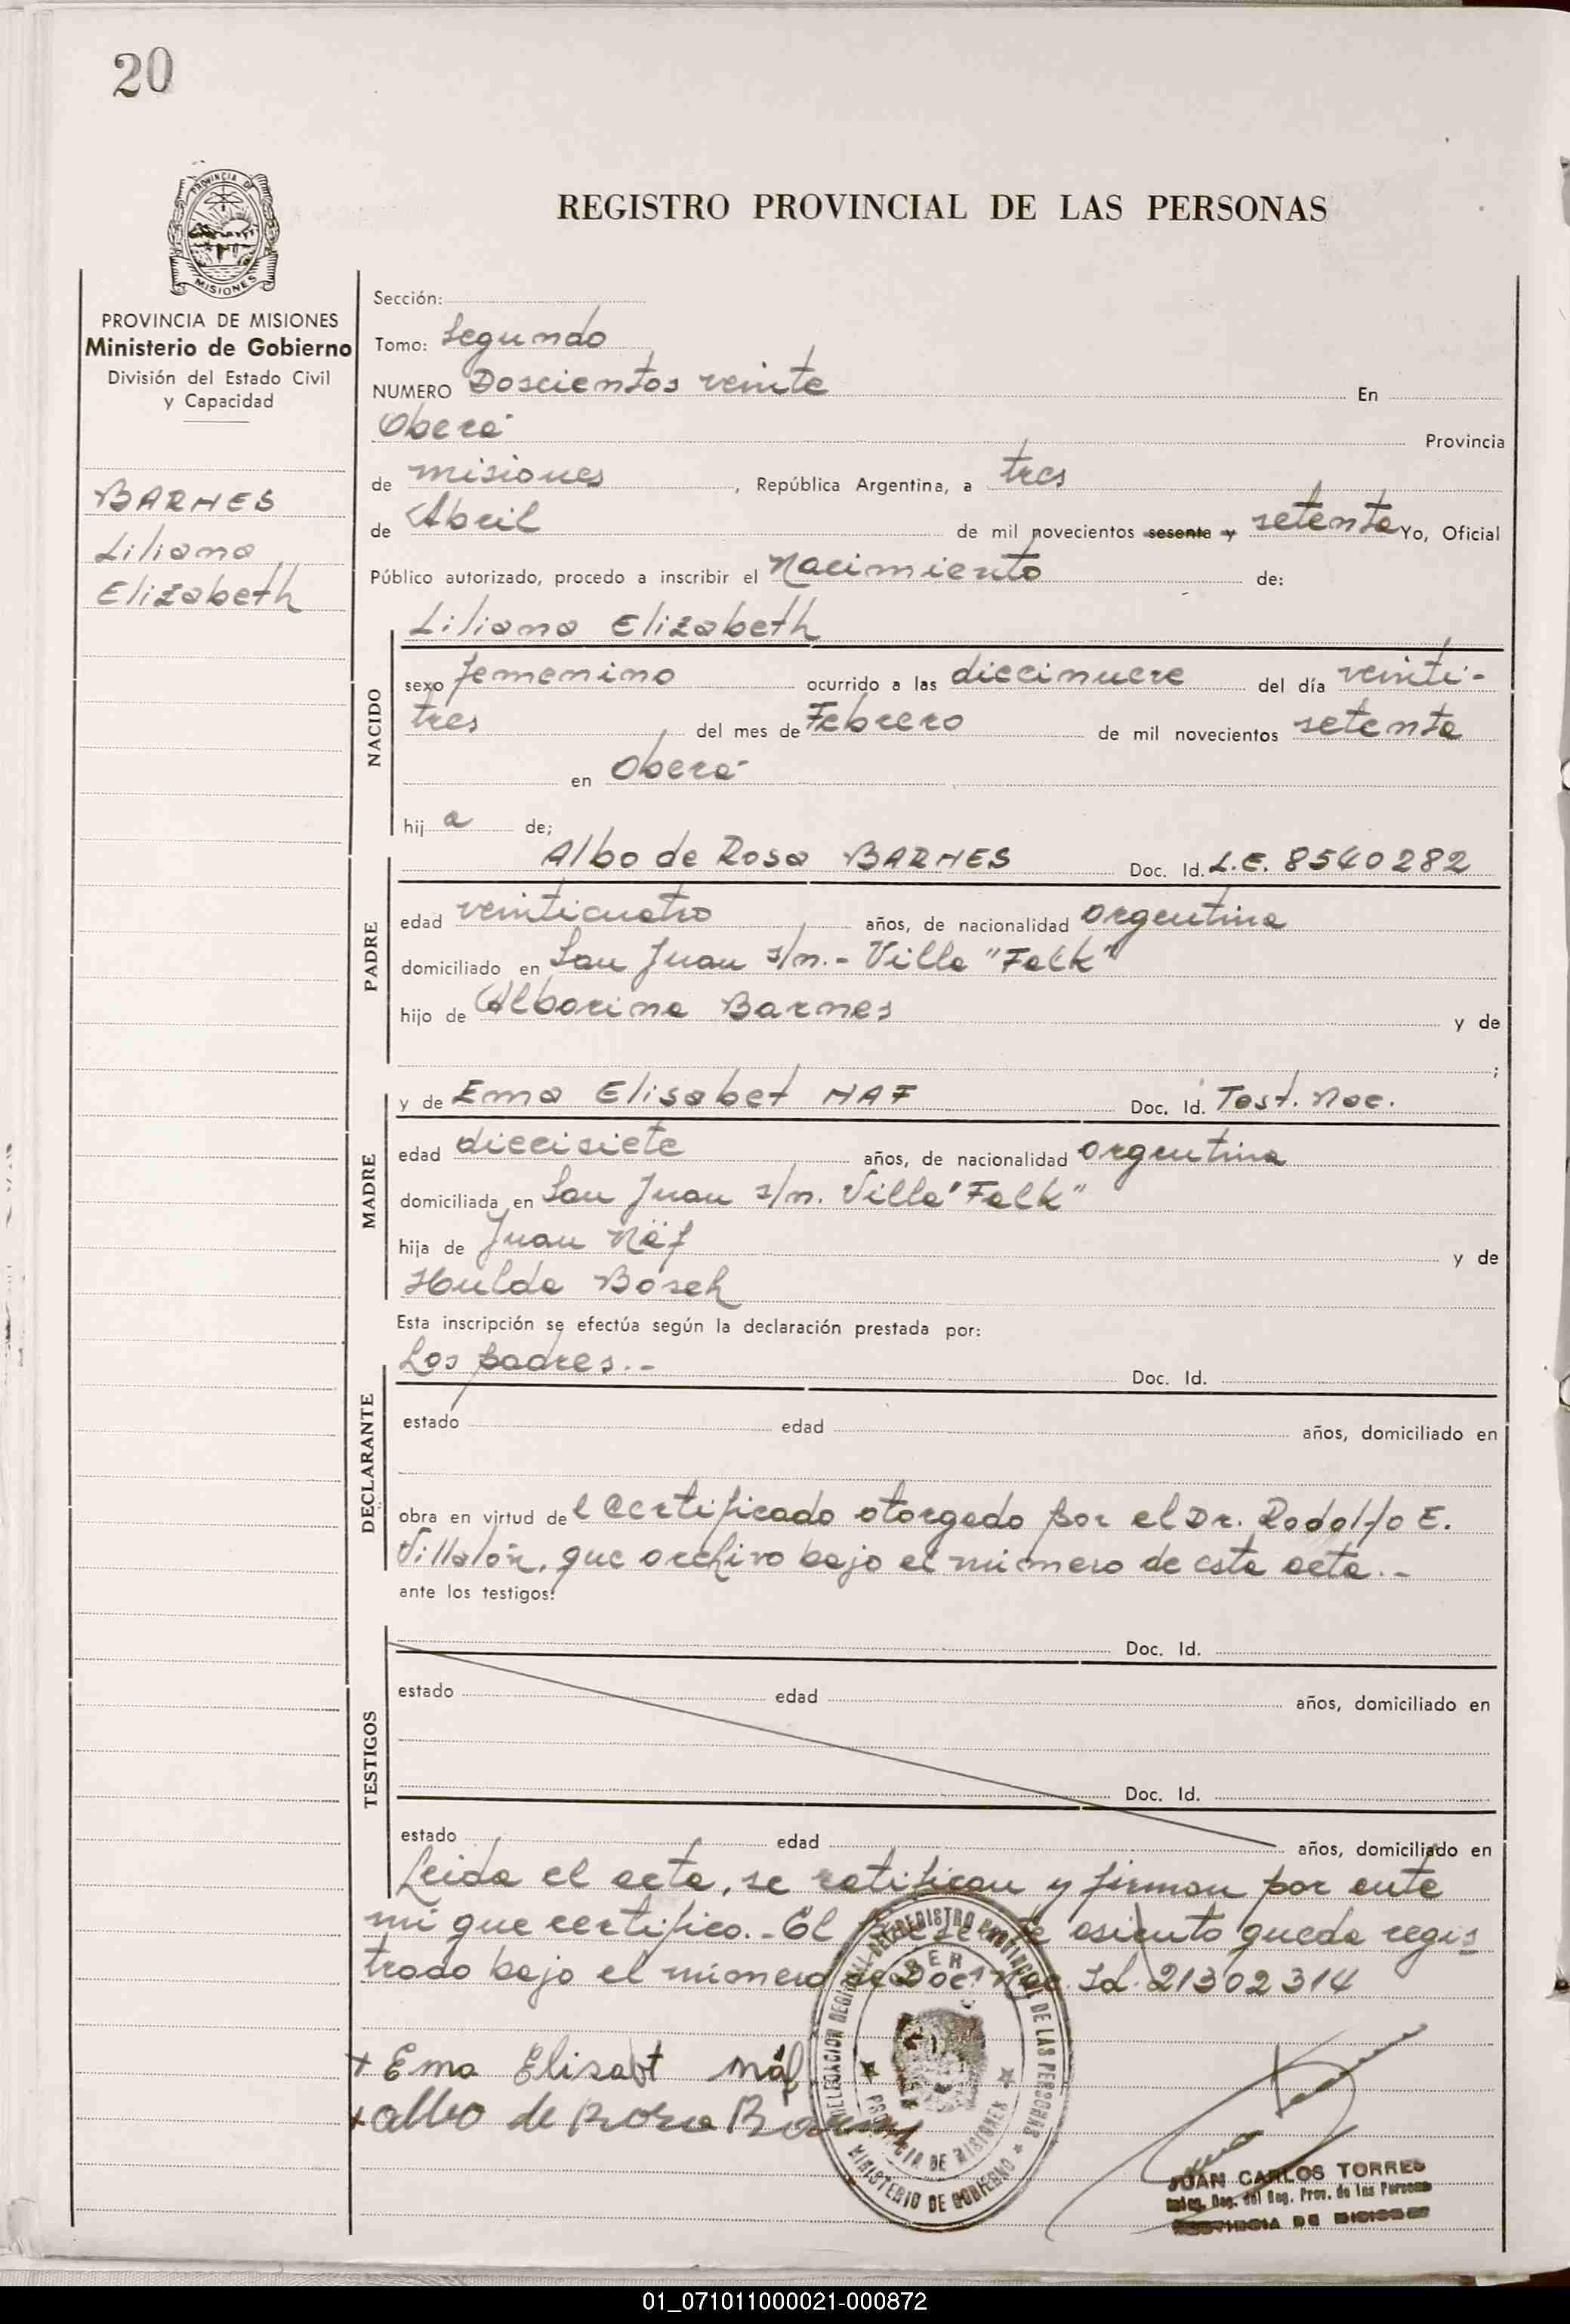 20
PROVINCIA DE
MISIONES
REGISTRO PROVINCIAL DE LAS PERSONAS
PROVINCIA DE MISIONES
Ministerio de Gobierno
División del Estado Civil
y Capacidad
BARNES
Liliana
Elizabeth
Sección:
Tomo: Segundo
NUMERO Doscientos veinte En
Oberá Provincia
de misiones, República Argentina, a tres
de Abril de mil novecientos sesenta y setenta Yo, Oficial
Público autorizado, procedo a inscribir el Nacimiento de:
Liliana Elizabeth
NACIDO
sexo femenino ocurrido a las diecinueve del día veinti-
tres del mes de Febrero de mil novecientos setenta
en Oberá
hij a de;
Albo de Rosa BARNES Doc. Id. L.E. 8540282
PADRE
edad veinticuatro años, de nacionalidad argentina
domiciliado en San Juan s/n.- Villa "Falk"
hijo de Alborina Barnes y de
;
y de Ema Elisabet NAF Doc. Id. Test. Nac.
MADRE
edad diecisiete años, de nacionalidad argentina
domiciliada en San Juan s/n. Villa "Falk"
hija de Juan Näf y de
Hulda Bosch
Esta inscripción se efectúa según la declaración prestada por:
Los padres.- Doc. Id.
DECLARANTE
estado edad años, domiciliado en
obra en virtud de l certificado otorgado por el Dr. Rodolfo E.
Villalón, que archivo bajo el número de esta acta.-
ante los testigos:
TESTIGOS
Doc. Id.
estado edad años, domiciliado en
Doc. Id.
estado edad años, domiciliado en
Leida el acta, se ratifican y firman por ante
mí que certifico.- El presente asiento queda regis
trado bajo el número de Doc. Nac. Id. 21302314
+ Ema Elisabt Näf
+ albo de Rosa Barnes
DELEGACION REGIONAL DEL REGISTRO PROVINCIAL DE LAS PERSONAS
PROVINCIA DE MISIONES
MINISTERIO DE GOBIERNO
JUAN CARLOS TORRES
Deleg. Reg. del Reg. Prov. de las Personas
PROVINCIA DE MISIONES
01_071011000021-000872